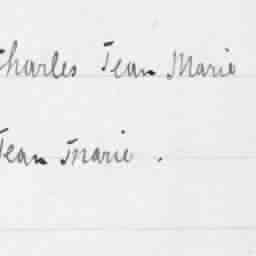 Charles Jean Marie
Jean Marie .